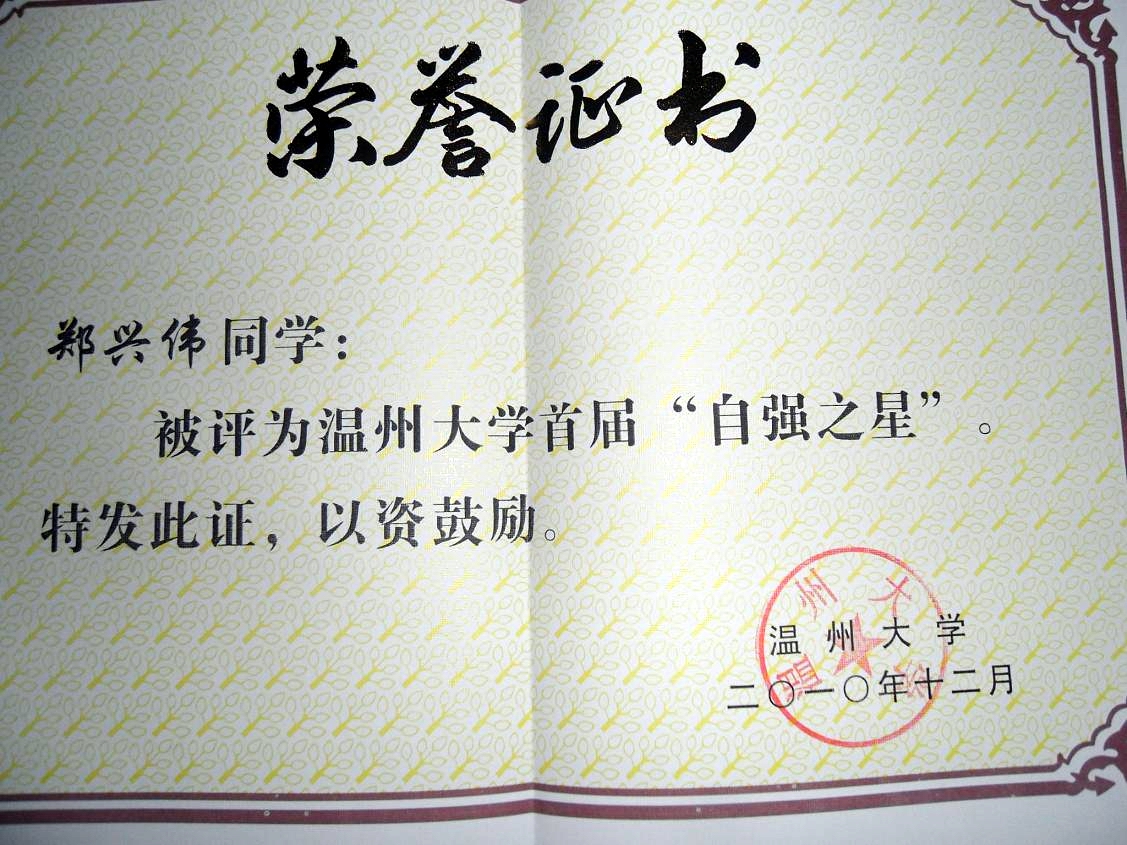 荣誉证书
郑兴伟同学：
被评为温州大学首届“自强之星”。
特发此证，以资鼓励。
温州大学
温州大学
二〇一〇年十二月